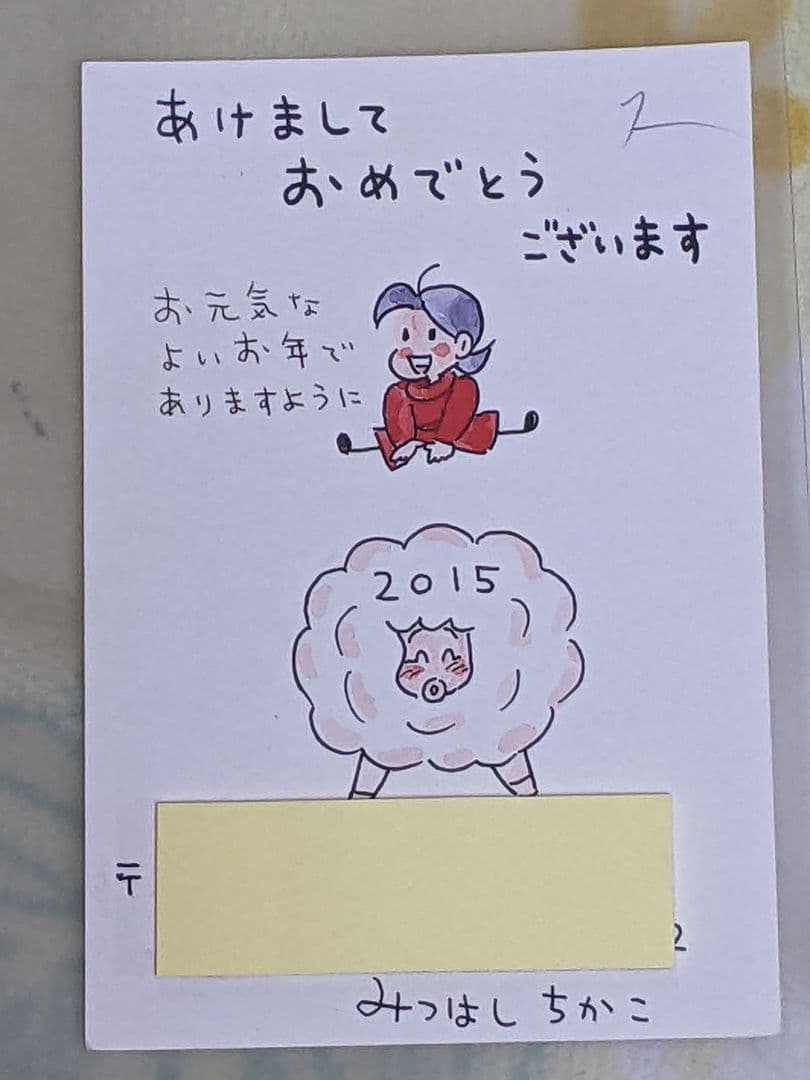 あけまして
おめでとう
ございます
お元気な
よいお年で
ありますように
2015
〒
2
みつはし ちかこ